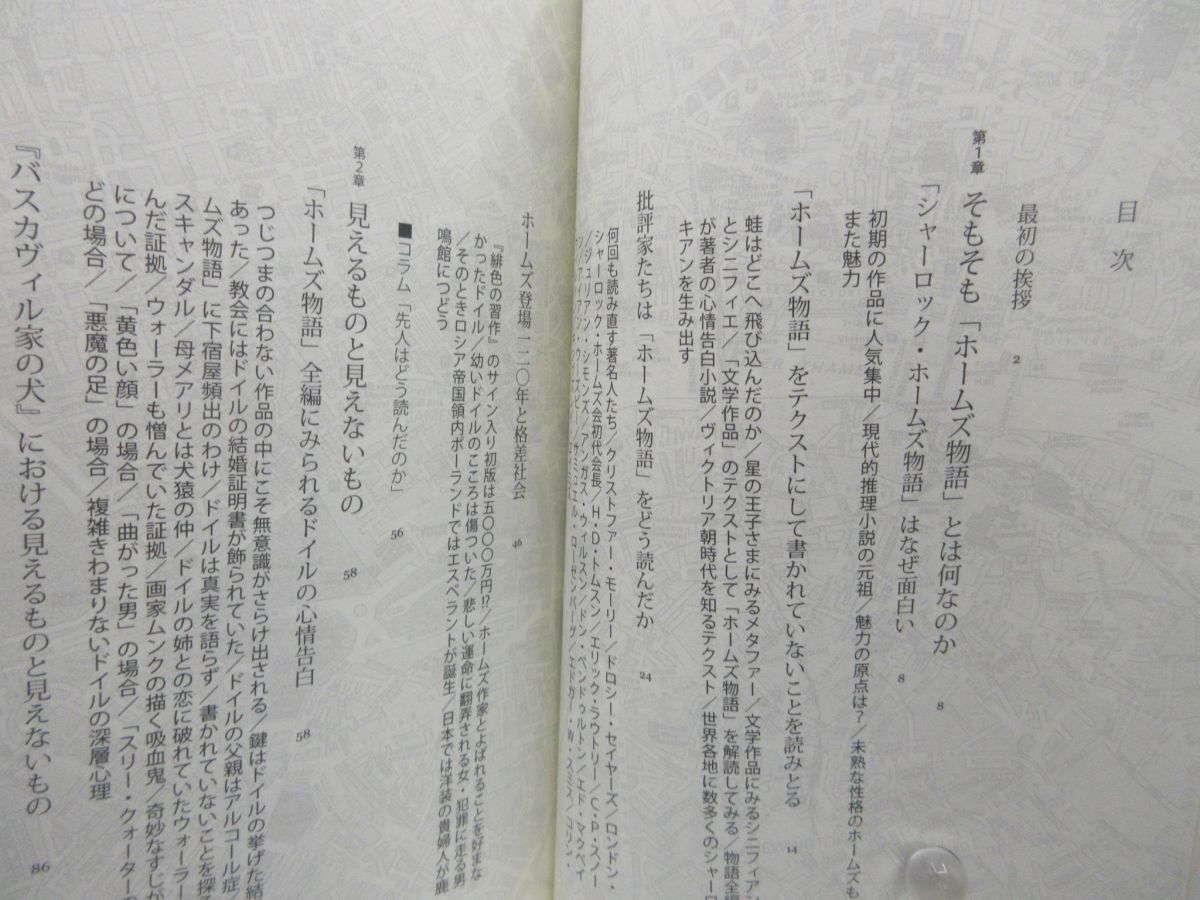 目次
最初の挨拶 2
第1章 そもそも「ホームズ物語」とは何なのか 8
「シャーロック・ホームズ物語」はなぜ面白い 8
初期の作品に人気集中/現代的推理小説の元祖/魅力の原点は?/未熟な性格のホームズも
また魅力
「ホームズ物語」をテクストにして書かれていないことを読みとる 14
蛙はどこへ飛び込んだのか/星の王子さまにみるメタファー/文学作品にみるシニフィアン
とシニフィエ/「文学作品」のテクストとして「ホームズ物語」を解読してみる/物語全編
が著者の心情告白小説/ヴィクトリア朝時代を知るテクスト/世界各地に数多くのシャーロ
キアンを生み出す
批評家たちは「ホームズ物語」をどう読んだか 24
何回も読み直す著名人たち/クリストファー・モーリー/ドロシー・セイヤーズ/ロンドン・
シャーロック・ホームズ会初代会長/H・D・トムスン/エリック・ラウトリー/C・P・スノー
/ジュリアン・シモンズ/アンガス・ウィルスン/ドン・ペンドルトン/エド・マクベイ
サミュエル・ローゼンバーグ/エドガー・W・スミス/コリン・
ホームズ登場一二〇年と格差社会 46
『緋色の習作』のサイン入り初版は五〇〇〇万円!?/ホームズ作家とよばれることを好まな
かったドイル/幼いドイルのこころは傷ついた/悲しい運命に翻弄される女・犯罪に走る男
/そのときロシア帝国領内ポーランドではエスペラントが誕生/日本では洋装の貴婦人が鹿
鳴館につどう
■コラム「先人はどう読んだのか」 56
第2章 見えるものと見えないもの 58
「ホームズ物語」全編にみられるドイルの心情告白 58
つじつまの合わない作品の中にこそ無意識がさらけ出される/鍵はドイルの挙げた結
あった/教会にはドイルの結婚証明書が飾られていた/ドイルの父親はアルコール症/
ムズ物語」に下宿屋頻出のわけ/ドイルは真実を語らず/書かれていないことを探る
スキャンダル/母メアリとは犬猿の仲/ドイルの姉との恋に破れていたウォーラー
んだ証拠/ウォーラーも憎んでいた証拠/画家ムンクの描く吸血鬼/奇妙なすじが
について/「黄色い顔」の場合/「曲がった男」の場合/「スリー・クォーター
どの場合/「悪魔の足」の場合/複雑きわまりないドイルの深層心理
『バスカヴィル家の犬』における見えるものと見えないもの 86